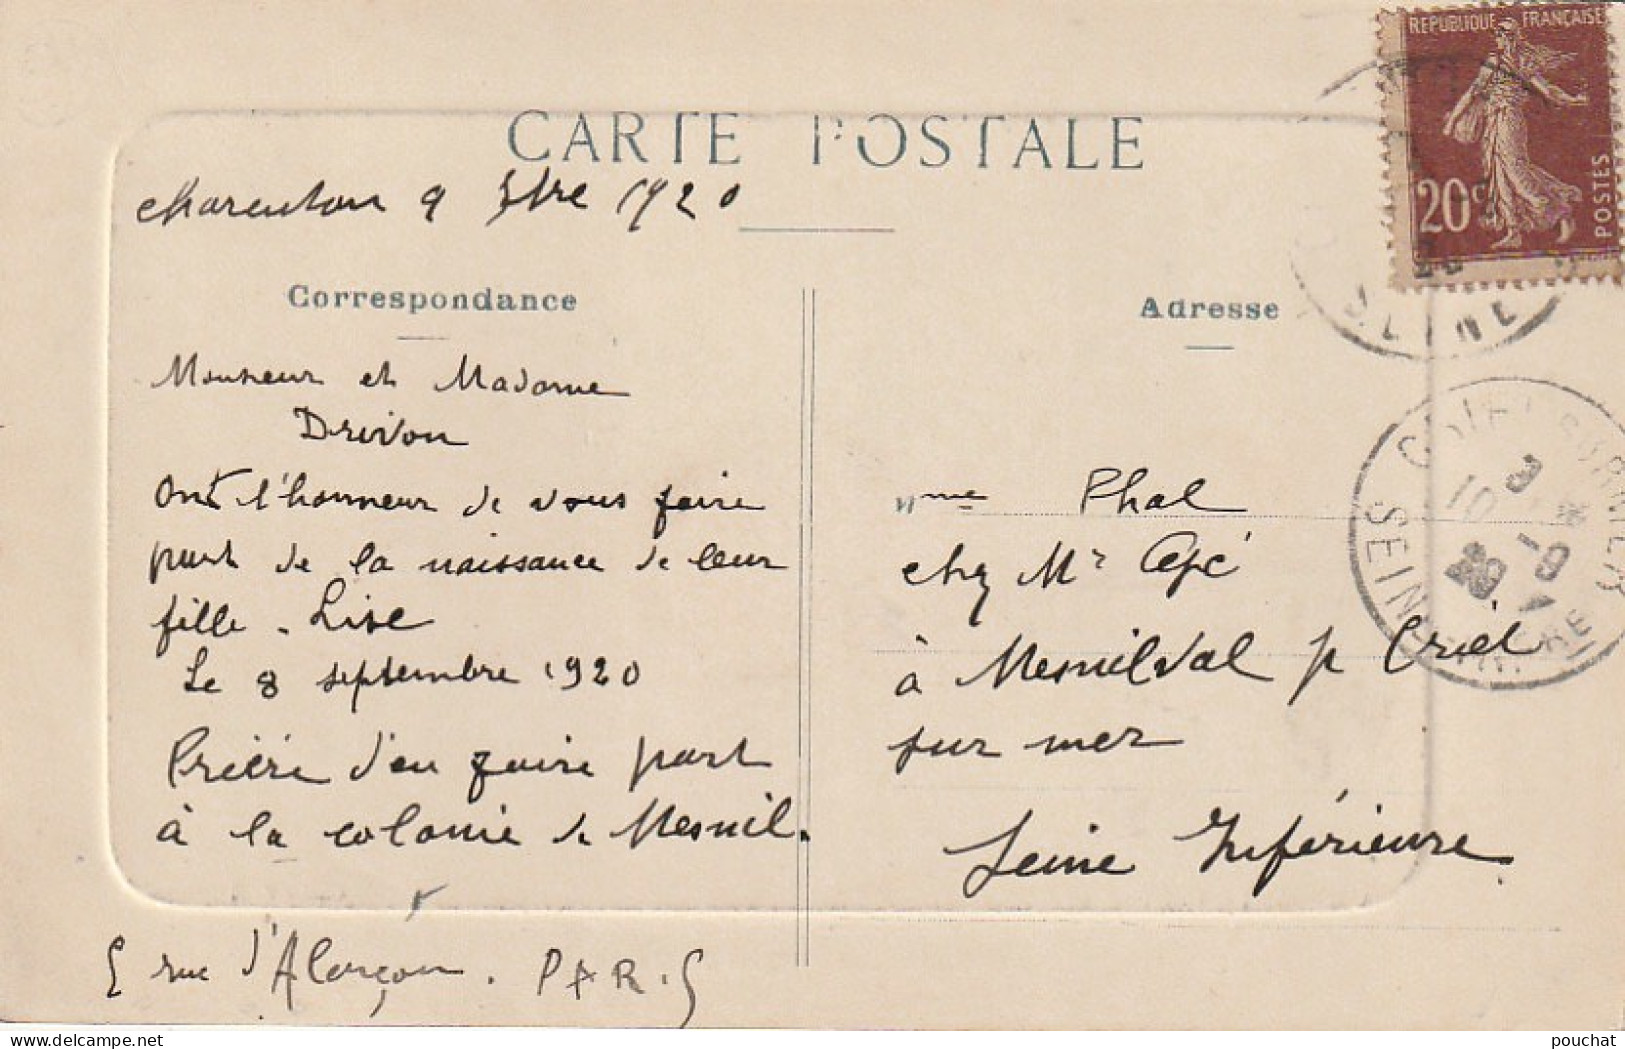 REPUBLIQUE FRANÇAISE
20c
POSTES
CARTE POSTALE
Charenton 9 7bre 1920
Correspondance
Monsieur et Madame
Drivon
Ont l'honneur de vous faire
part de la naissance de leur
fille. Lise
Le 8 septembre 1920
Prière d'en faire part
à la colonie de Mesnil.
5 rue d'Alençon. PARIS
Adresse
Mme Phal
chez Mr
à Mesnilval p Criel
sur mer
Seine Inférieure.
SEINE
SEINE INFRE
pouchat